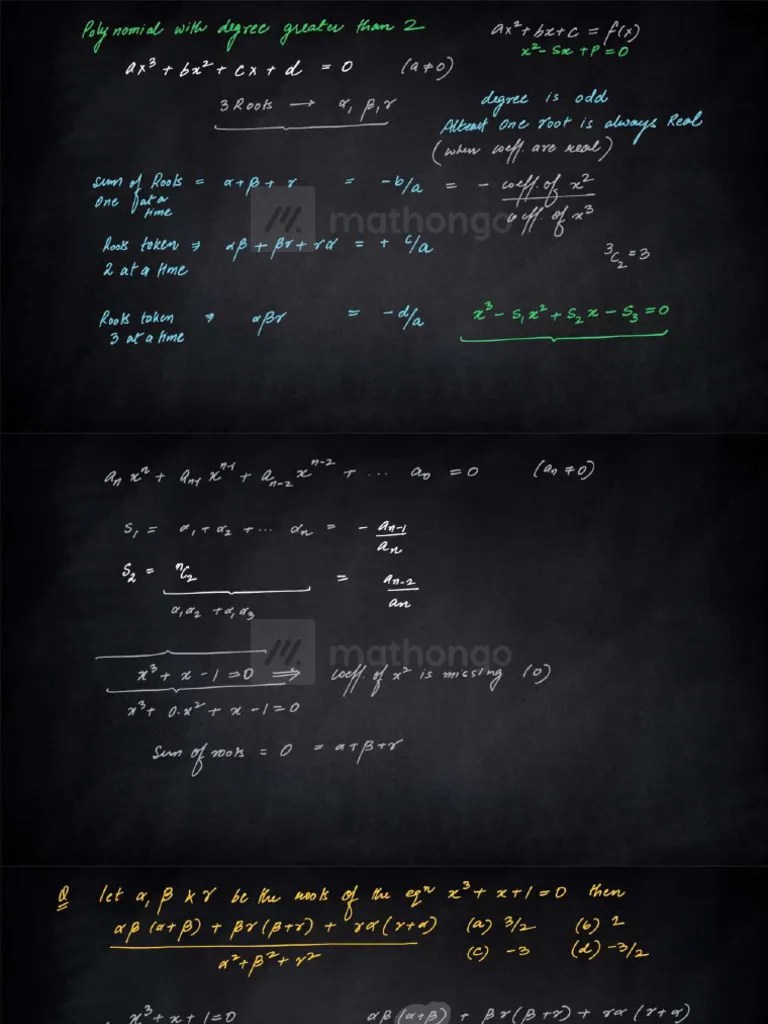 Polynomial with degree greater than 2
ax² + bx + c = f(x)
x² - Sx + P = 0
ax³ + bx² + cx + d = 0 (a ≠ 0)
3 Roots → α, β, γ
degree is odd
Atleast One root is always Real
(when coeff. are real)
Sum of Roots = α + β + γ = -b/a = - coeff. of x² / coeff of x³
One at a time
mathongo
Roots taken ⇒ αβ + βγ + γα = + c/a
2 at a time
³C₂ = 3
Roots taken ⇒ αβγ = -d/a
3 at a time
x³ - S₁x² + S₂x - S₃ = 0
aₙxⁿ + aₙ₋₁xⁿ⁻¹ + aₙ₋₂xⁿ⁻² + ... a₀ = 0 (aₙ ≠ 0)
S₁ = α₁ + α₂ + ... αₙ = - aₙ₋₁ / aₙ
S₂ = ⁿC₂ = aₙ₋₂ / aₙ
α₁α₂ + α₁α₃
mathongo
x³ + x - 1 = 0 ⇒ coeff. of x² is missing (0)
x³ + 0.x² + x - 1 = 0
Sum of roots = 0 = α + β + γ
Q let α, β & γ be the roots of the eqⁿ x³ + x + 1 = 0 then
αβ(α+β) + βγ(β+γ) + γα(γ+α) / α² + β² + γ²
(a) 3/2 (b) 2
(c) -3 (d) -3/2
x³ + x + 1 = 0 αβ(α+β) + βγ(β+γ) + γα(γ+α)